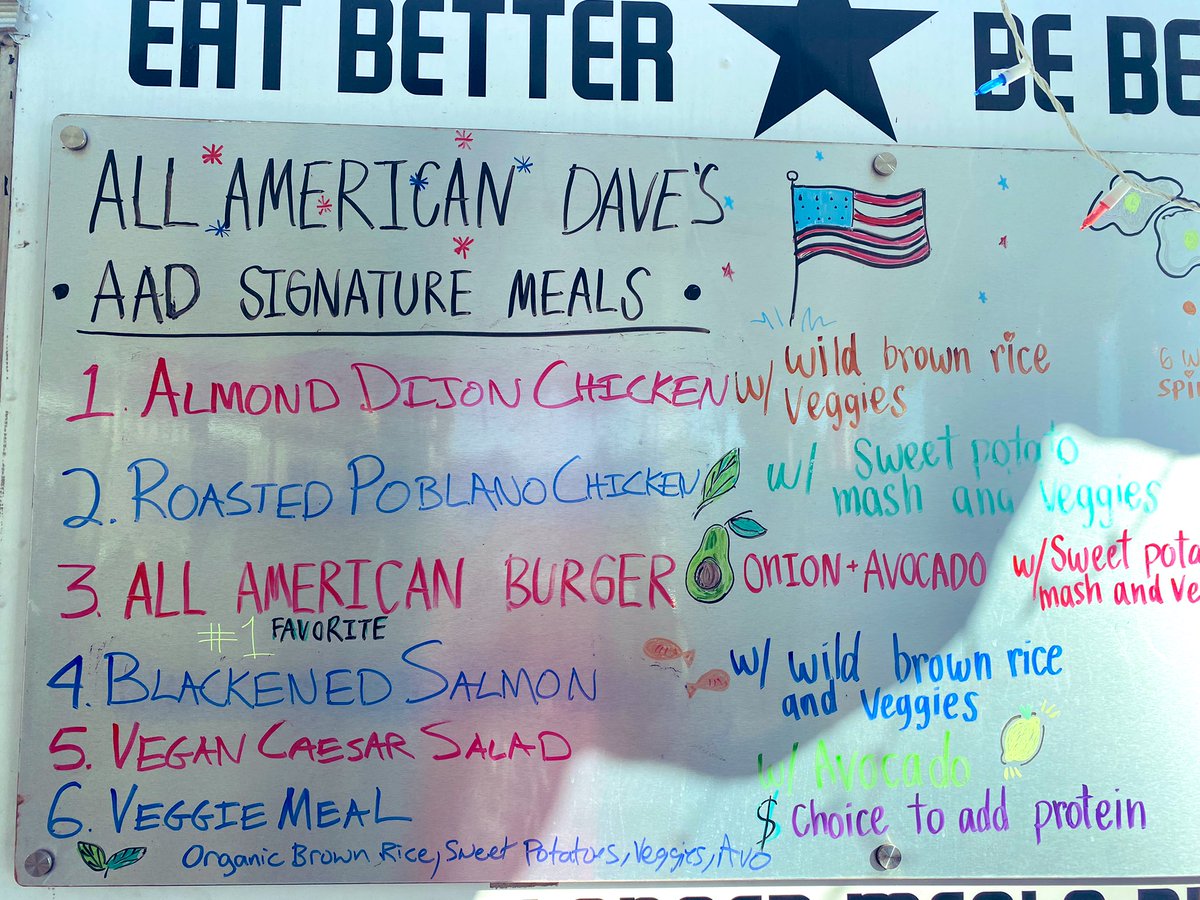 EAT BETTER ★ BE BE
ALL AMERICAN DAVE'S
• AAD SIGNATURE MEALS •
1. ALMOND DIJON CHICKEN w/ wild brown rice
Veggies
2. ROASTED POBLANO CHICKEN w/ Sweet potato
mash and Veggies
3. ALL AMERICAN BURGER ONION + AVOCADO w/ Sweet pota
mash and Ve
#1 FAVORITE
4. BLACKENED SALMON w/ wild brown rice
and Veggies
5. VEGAN CAESAR SALAD w/ Avocado
6. VEGGIE MEAL $ Choice to add protein
Organic Brown Rice, Sweet Potatoes, Veggies, Avo
6 W
SPI